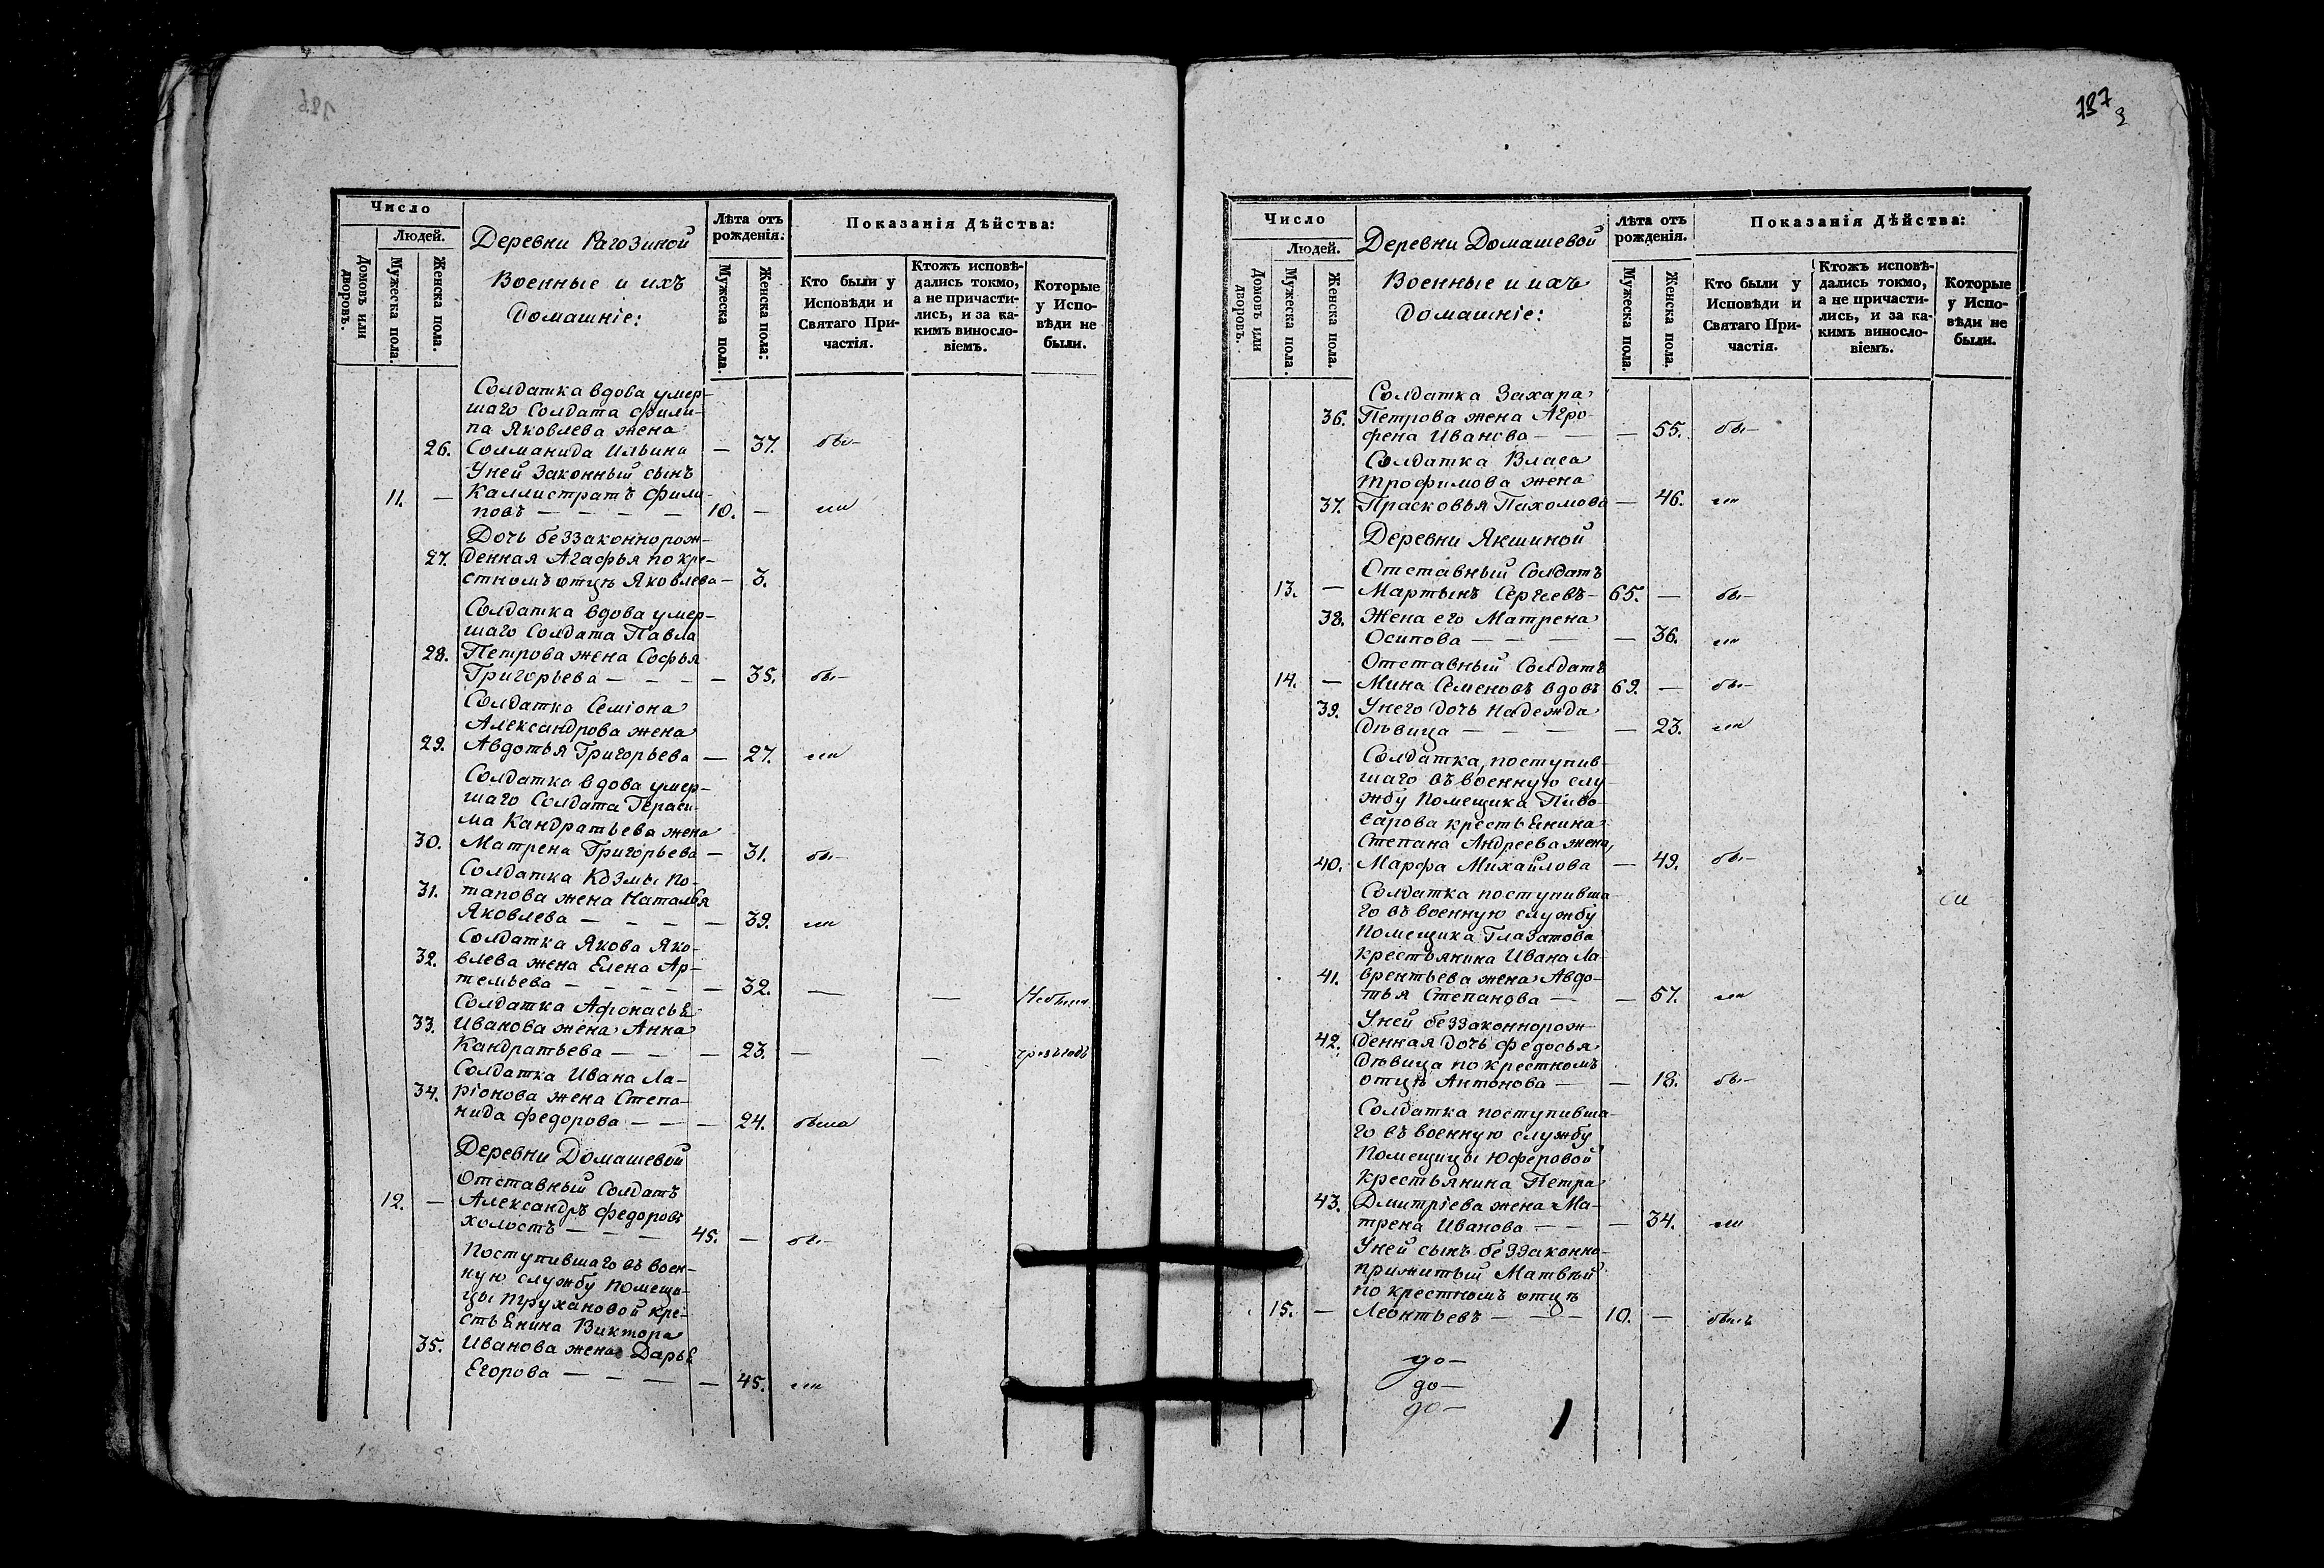 Число
Людей.
Домовъ или дворовъ.
Мужеска пола.
Женска пола.
Деревни Рагозиной
Военные и ихъ
Домашніе:
Лѣта отъ рожденія.
Мужеска пола.
Женска пола:
Показанія Дѣйства:
Кто были у Исповѣди и Святаго Причастія.
Ктожъ исповѣдались токмо, а не причастились, и за какимъ винословіемъ.
Которые у Исповѣди не были.
Солдатка вдова умер-
шаго Солдата Фили-
па Яковлева жена
26. Солманида Ильина — 37. бы-
Уней Законный сынъ
11. — Каллистратъ Фили-
повъ — — — — 10. — ла
Дочь беззаконнорож-
27. денная Агафья по кре-
стномъ отцѣ Яковлева — 3.
Солдатка вдова умер-
шаго Солдата Павла
28. Петрова жена Софья
Григорьева — — — — 35. бы-
Солдатка Семіона
Александрова жена
29. Авдотья Григорьева — 27. ла
Солдатка вдова умер-
шаго Солдата Гераси-
ма Кандратьева жена
30. Матрена Григорьева — 31. бы-
Солдатка Козмы По-
31. тапова жена Наталья
Яковлева — — — — 39. ла
Солдатка Якова Яко-
32. влева жена Елена Ар-
темьева — — — — — 32. — —
Солдатка Афонасье
33. Иванова жена Анна
Кандратьева — — — 23. — —
Солдатка Ивана Ла-
34. ріонова жена Степа-
нида Федорова — — — 24. была
Деревни Домашевой
Отставный Солдатъ
12. — Александръ Федоровъ
холостъ — — — 45. — бы-
Поступившаго въ воен-
ную службу помещи-
цы Трухановой кре-
стьенина Виктора
35. Иванова жена Дарье
Егорова — — — — 45. ла
187
Число
Людей.
Домовъ или дворовъ.
Мужеска пола.
Женска пола.
Деревни Домашевой
Военные и ихъ
Домашніе:
Лѣта отъ рожденія.
Мужеска пола.
Женска пола.
Показанія Дѣйства:
Кто были у Исповѣди и Святаго Причастія.
Ктожъ исповѣдались токмо, а не причастились, и за какимъ винословіемъ.
Которые у Исповѣди не были.
Солдатка Захара
36. Петрова жена Агро-
фена Иванова — — — 55. бы-
Солдатка Власа
Трофимова жена
37. Прасковья Пахомова — 46. ла
Деревни Якшиной
Отставный Солдатъ
13. — Мартынъ Сергеевъ — 65. — бы-
38. Жена его Матрена
Осипова — — — — 36. ла
Отставный Солдатъ
14. — Мина Семеновъ вдовъ 69. — бы-
39. Унего дочь Надежда
дѣвица — — — — 23. ла
Солдатка, поступив-
шаго въ военную слу-
жбу Помещика Пиво-
варова крестьенина
Степана Андреева жена,
40. Марфа Михайлова — 49. бы-
Солдатка поступивша-
го въ военную службу
Помещика Глазатова
крестьянина Ивана Ла-
41. врентьева жена Авдо-
тья Степанова — — 57. ла
Уней беззаконнорож-
42. денная дочь Федосья
дѣвица по крестномъ
отцѣ Антонова — — 18. бы-
Солдатка поступивша-
го въ военную службу
Помещицы Юферовой
крестьянина Петра
43. Дмитріева жена Ма-
трена Иванова — — — 34. ла
Уней сынъ беззаконно-
прижитый Матвѣй
по крестномъ отцѣ
15. — Леонтьевъ — — — 10. — былъ